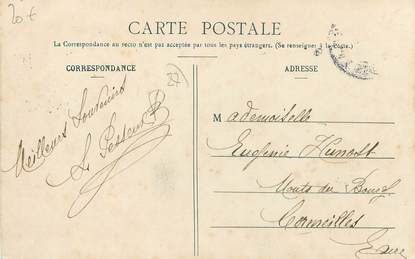 20 €
CARTE POSTALE
La Correspondance au recto n'est pas acceptée par tous les pays étrangers. (Se renseigner à la Poste.)
CORRESPONDANCE
(27)
Meilleurs Souvenirs
ADRESSE
Mademoiselle
Eugénie
Monts du Bourg
Cormeilles
Eure